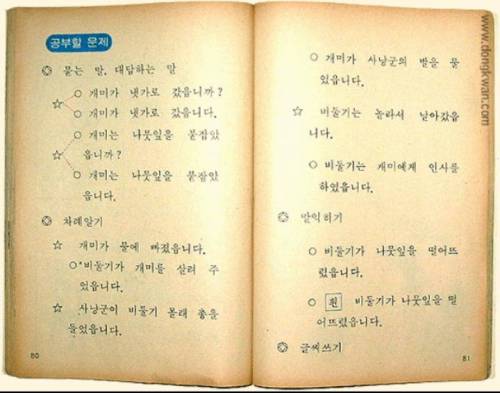 공부할 문제
◎ 묻는 말, 대답하는 말
○ 개미가 냇가로 갔읍니까?
☆
○ 개미가 냇가로 갔읍니다.
○ 개미는 나뭇잎을 붙잡았
☆ 읍니까?
○ 개미는 나뭇잎을 붙잡았
읍니다.
◎ 차례알기
☆ 개미가 물에 빠졌읍니다.
○ 비둘기가 개미를 살려 주
었읍니다.
☆ 사냥군이 비둘기 몰래 총을
들었읍니다.
80
○ 개미가 사냥군의 발을 물
었읍니다.
☆ 비둘기는 놀라서 날아갔읍
니다.
○ 비둘기는 개미에게 인사를
하였읍니다.
◎ 말익히기
○ 비둘기가 나뭇잎을 떨어뜨
렸읍니다.
○ 흰 비둘기가 나뭇잎을 떨
어뜨렸읍니다.
◎ 글씨쓰기
81
www.dongkwan.com